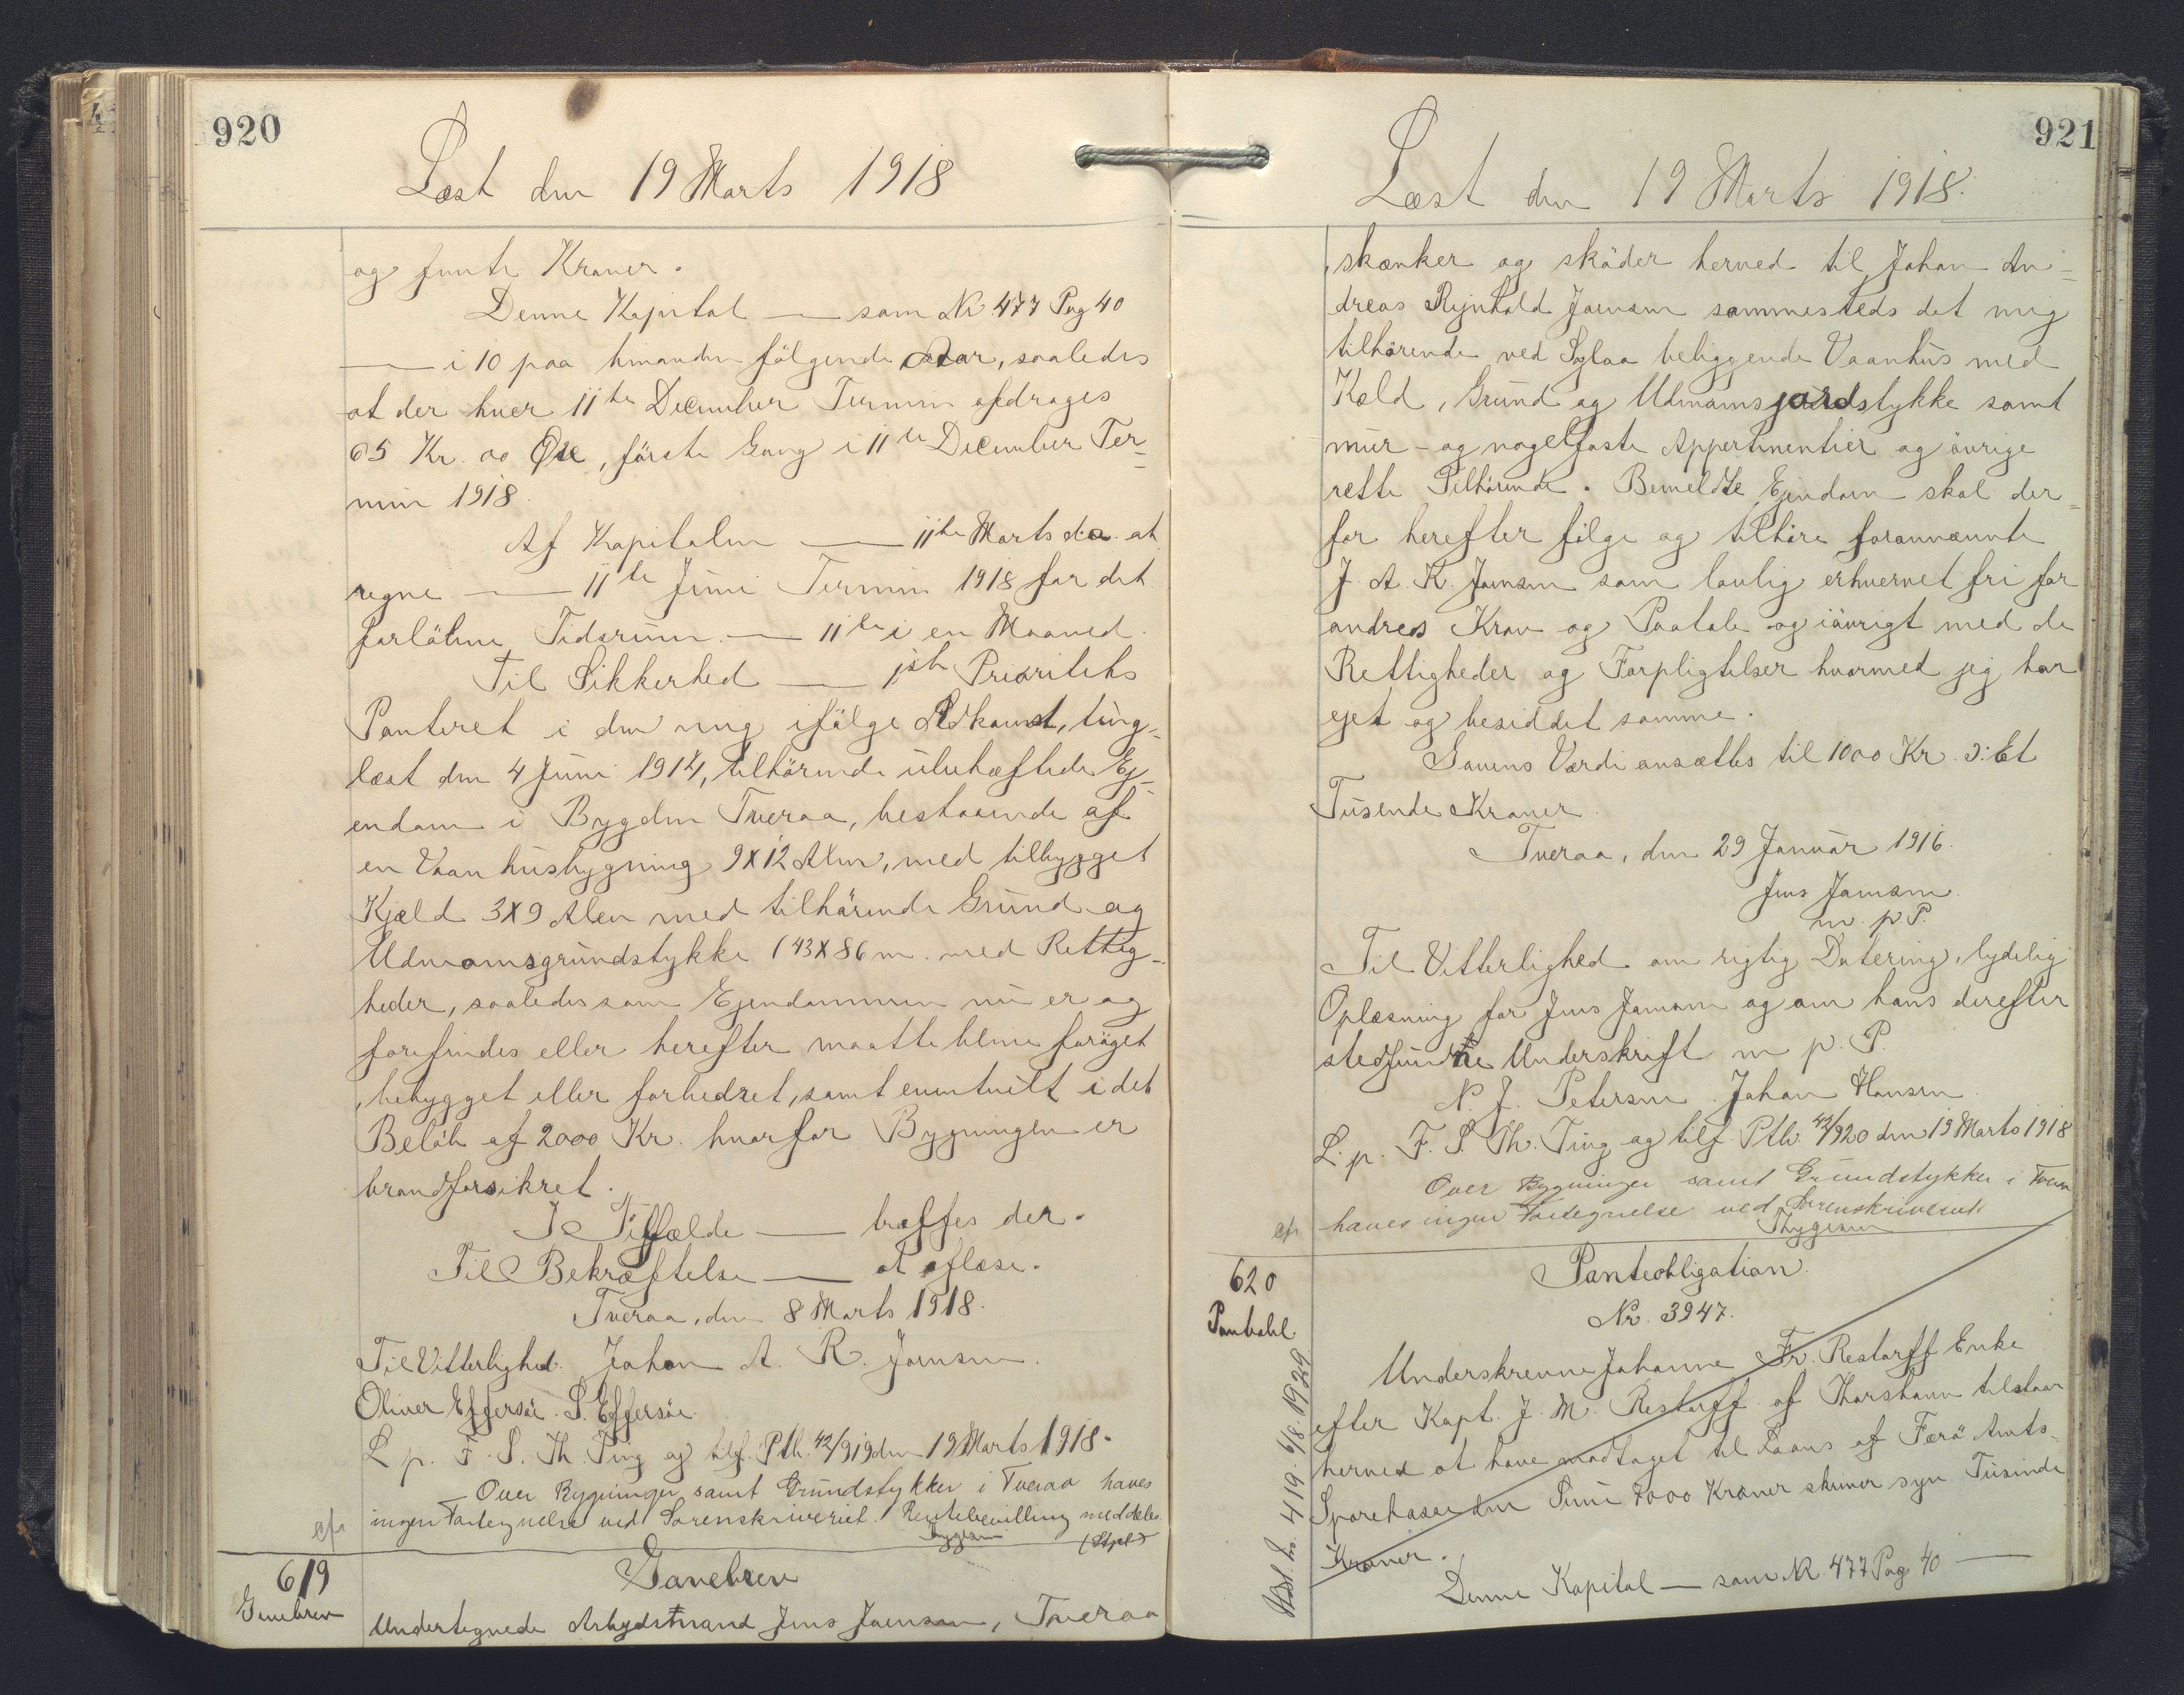 920
Læst den 19 Marts 1918
og femti Kroner.
Denne Kapital — som Nr 477 Pag 40
— i 10 paa hinanden følgende Aar, saaledes
at der hver 11te December Termin afdrages
65 Kr. 00 Øre, første Gang i 11te December Ter=
min 1918.
Af Kapitalen — 11te Marts d.a. at
regne — 11te Juni Termin 1918 for det
forløbne Tidsrum — 11te i en Maaned.
Til Sikkerhed — 1ste Prioritets
Panteret i den mig ifølge Adkomst, ting=
læst den 4 Juni 1914, tilhørende ubehæftede Ej=
endom i Bygden Tveraa, bestaaende af
en Vaanhusbygning 9X12 Alen, med tilbygget
Kjæld 3X9 Alen med tilhørende Grund og
Udmarksgrundstykke (43X86 m. med Rettig=
heder, saaledes som Ejendommen nu er og
forefindes eller herefter maatte blive forøget
, bebygget eller forbedret, samt eventuelt i det
Beløb af 2000 Kr. hvorfor Bygningen er
brandforsikret.
I Tilfælde — træffes der.
Til Bekræftelse — at aflæse.
Tveraa, den 8 Marts 1918.
Til Vitterlighed. Johan A. R. Joensen.
Oliver Effersøe. S. Effersøe.
L. p. F. S. Th. Ting og tilf. Ptb. 42/919 den 19 Marts 1918.
Over Bygninger samt Grundstykker i Tveraa haves
ef. ingen Fortegnelse ved Sorenskriveriet. Rentebevilling meddeles.
Thygesen
619
Gavebrev
Gavebrev
Undertegnede Arbejdsmand Jens Joensen, Tveraa
921
Læst den 19 Marts 1918.
skænker og skøder herved til Johan An=
dreas Rejnhold Joensen sammesteds det mig
tilhørende ved Sylaa beliggende Vaanhus med
Kæld, Grund og Udmarksjordstykke samt
mur- og nagelfaste Appertinentier og øvrige
rette Tilhørende. Bemeldte Ejendom skal der=
for herefter følge og tilhøre forannævnte
J. A. R. Joensen som lovlig erhvervet fri for
andres Krav og Paatale og iøvrigt med de
Rettigheder og Forpligtelser hvormed jeg har
ejet og besiddet samme.
Gavens Værdi ansættes til 1000 Kr. ɔ: Et
Tusende Kroner.
Tveraa, den 29 Januar 1916.
Jens Joensen
m. p. P.
Til Vitterlighed om rigtig Datering, tydelig
Oplæsning for Jens Joensen og om hans derefter
stedfundne Underskrift m. p. P.
N. J. Petersen. Johan Hansen.
L. p. F. S. Th. Ting og tilf. Ptb. 42/920 den 19 Marts 1918
Over Bygninger samt Grundstykker i Tveraa
ef. haves ingen Fortegnelse ved Sorenskriveriet
Thygesen
620
Panteobl.
Panteobligation.
Nr. 3947.
Underskrevne Johanne Fr. Restorff Enke
efter Kapt. J. M. Restorff af Thorshavn tilstaar
herved at have modtaget til Laans af Færø Amts=
Sparekasse den Sum 7000 Kroner skriver syv Tusinde
Kroner.
Denne Kapital — som Nr. 477 Pag 40 —
Udsl. Nr. 419 - 6/8 - 1929